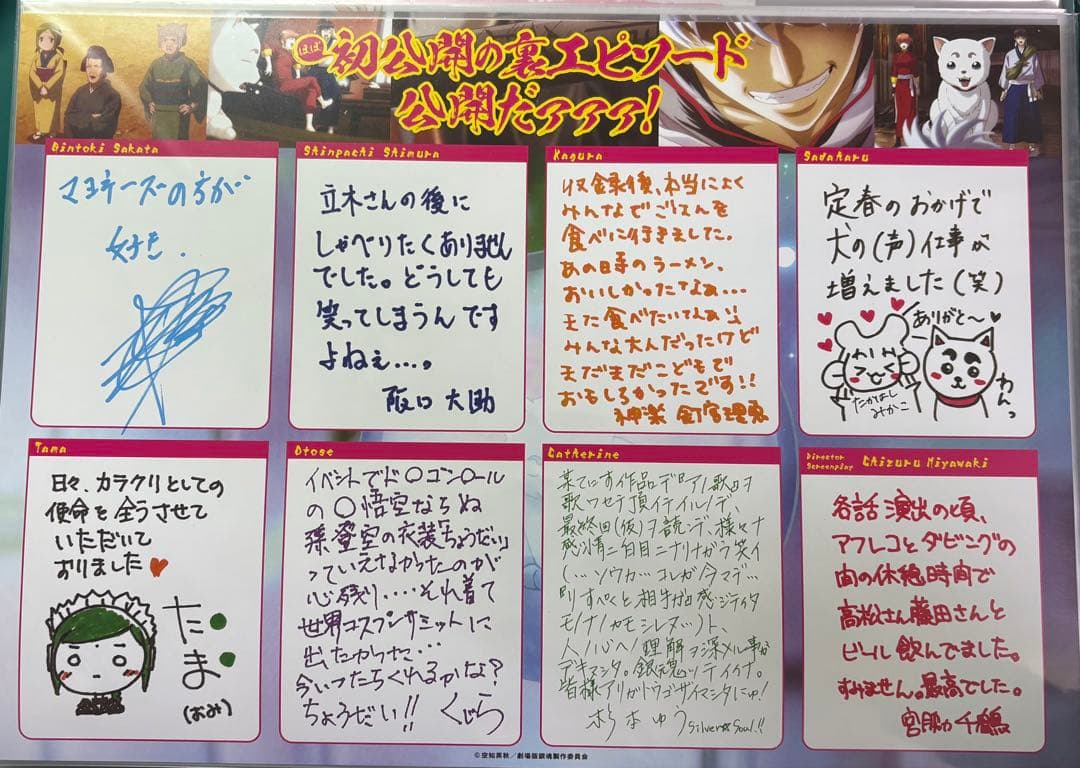 ほぼ初公開の裏エピソード
公開だァァァ!
Gintoki Sakata
マヨネーズの方が
好き.
Shinpachi Shimura
立木さんの後に
しゃべりたくありません
でした。どうしても
笑ってしまうんです
よねぇ…。
阪口 大助
Kagura
収録後、本当によく
みんなでごはんを
食べに行きました。
あの日々のラーメン、
おいしかったなぁ…
また食べたいなぁ
みんな大人だったけど
まだまだこどもで
おもしろかったです!!
神楽 釘宮理恵
Sadaharu
定春のおかげで
犬の(声)仕事が
増えました(笑)
ありがと〜
わんっ
たかはし
みかこ
Tama
日々、カラクリとしての
使命を全うさせて
いただいて
おりました
たま
(おみ)
Otose
イベントでド〇ゴン〇ール
の〇悟空ならぬ
孫登空の衣装「ちょうだい」
っていえなかったのが
心残り....それ着て
世界コスプレサミットに
出たかった…
今いったらくれるかな?
ちょうだい!! くじら
Catherine
歌ワセテ頂イテイルノデ
最終回(仮)ヲ読ンデ、様々ナ
(…ソウカ…コレガ今マデ…
モノナノカモシレタッ)ト、
人ノ心ヘノ理解ヲ深メル事が
デキマシタ。銀魂ッテイイナ。
皆様アリガトウゴザイマシタにゅ!
杉本ゆう Silver☆Soul!!
Director
Screenplay Chizuru Miyawaki
各話演出の頃、
アフレコとダビングの
間の休憩時間で
高松さん藤田さんと
ビール飲んでました。
すみません。最高でした。
宮脇 千鶴
©空知英秋/劇場版銀魂製作委員会